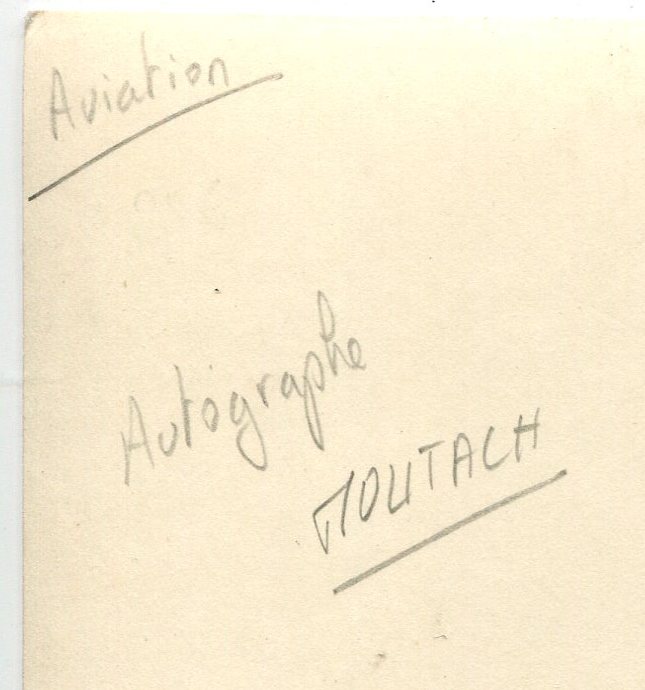 Aviation
Autographe
MOUTACH